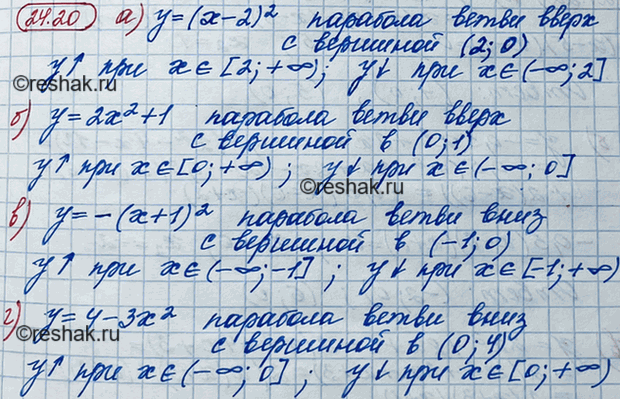 24.20 а) y=(x-2)² парабола ветви вверх
с вершиной (2; 0)
y↑ при x∈[2; +∞); y↓ при x∈(-∞; 2]
©reshak.ru
б) y=2x²+1 парабола ветви вверх
с вершиной в (0; 1)
y↑ при x∈[0; +∞) ; y↓ при x∈(-∞; 0]
©reshak.ru
в) y=-(x+1)² парабола ветви вниз
с вершиной в (-1; 0)
y↑ при x∈(-∞; -1] ; y↓ при x∈[-1; +∞)
г) y=4-3x² парабола ветви вниз
©reshak.ru
с вершиной в (0; 4)
y↑ при x∈(-∞; 0] ; y↓ при x∈[0; +∞)
©reshak.ru